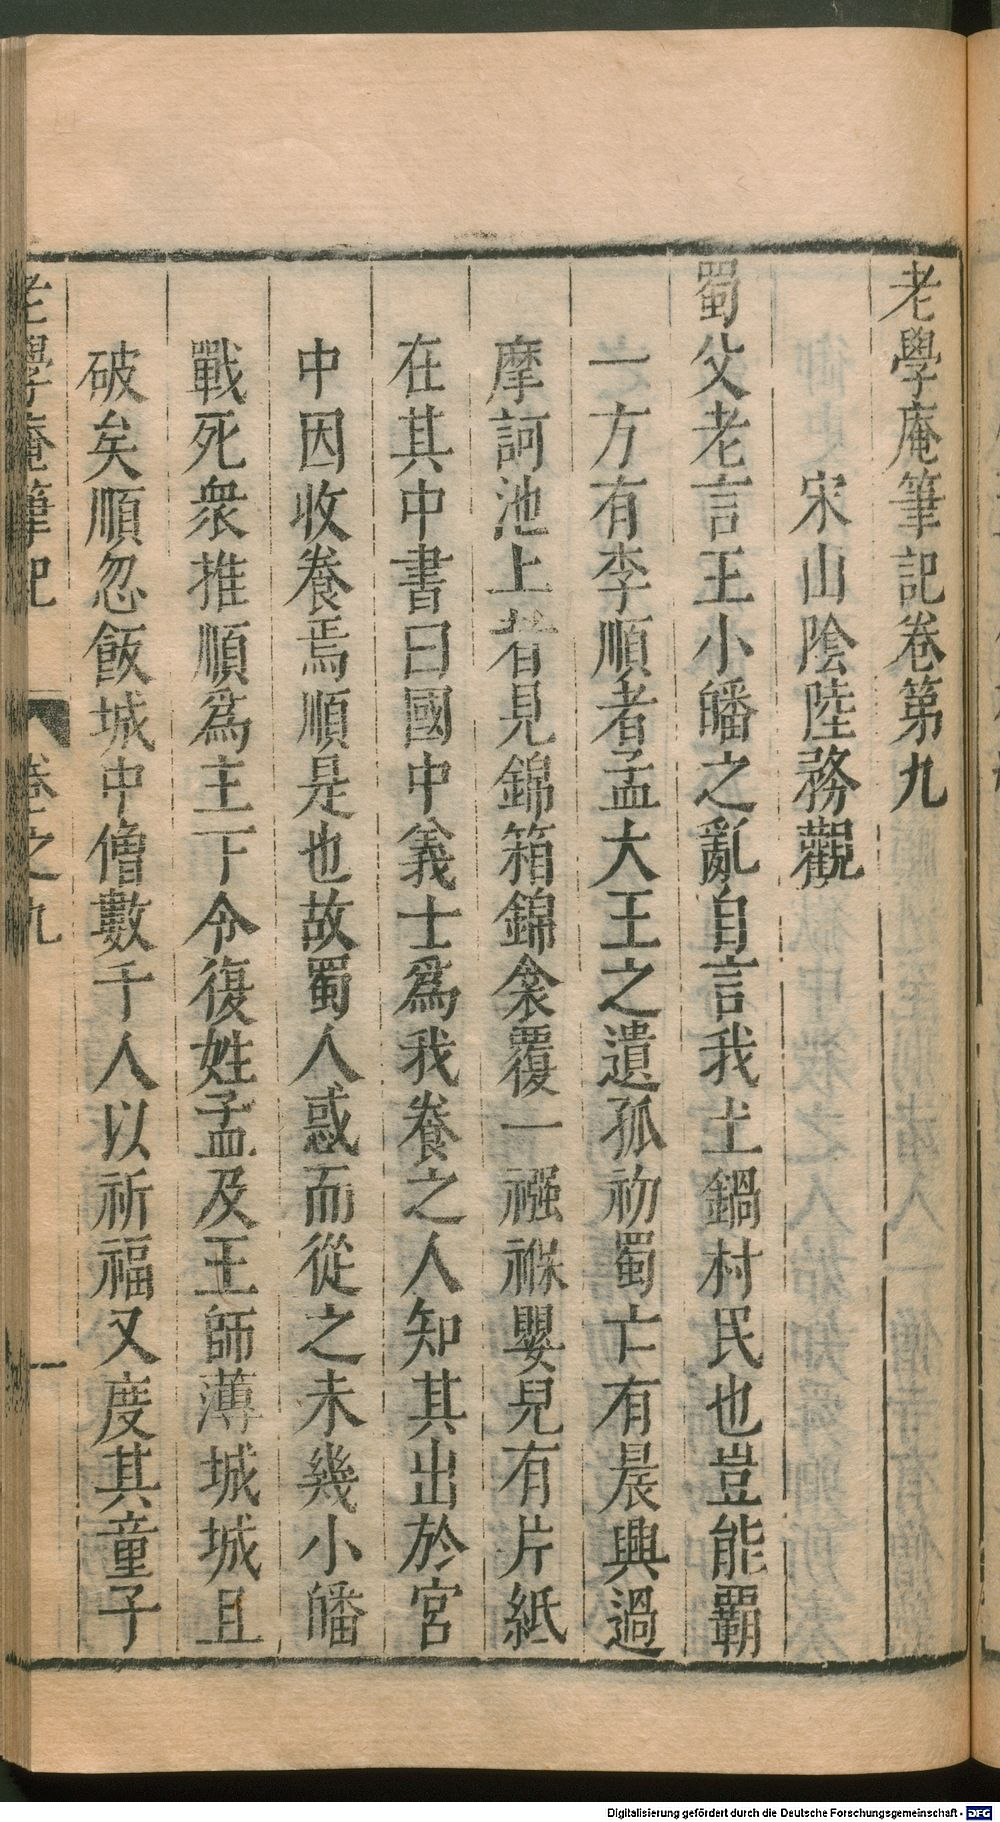 老學庵筆記卷第九
宋山陰陸務觀
蜀父老言王小皤之亂自言我土鍋村民也豈能霸
一方有李順者孟大王之遺孤初蜀亡有晨興過
摩訶池上者見錦箱錦衾覆一襁褓嬰兒有片紙
在其中書曰國中義士爲我養之人知其出於宮
中因收養焉順是也故蜀人惑而從之未幾小皤
戰死衆推順爲主下令復姓孟及王師薄城城且
破矣順忽飯城中僧數千人以祈福又度其童子
老學庵筆記 卷之九 一
Digitalisierung gefördert durch die Deutsche Forschungsgemeinschaft - DFG